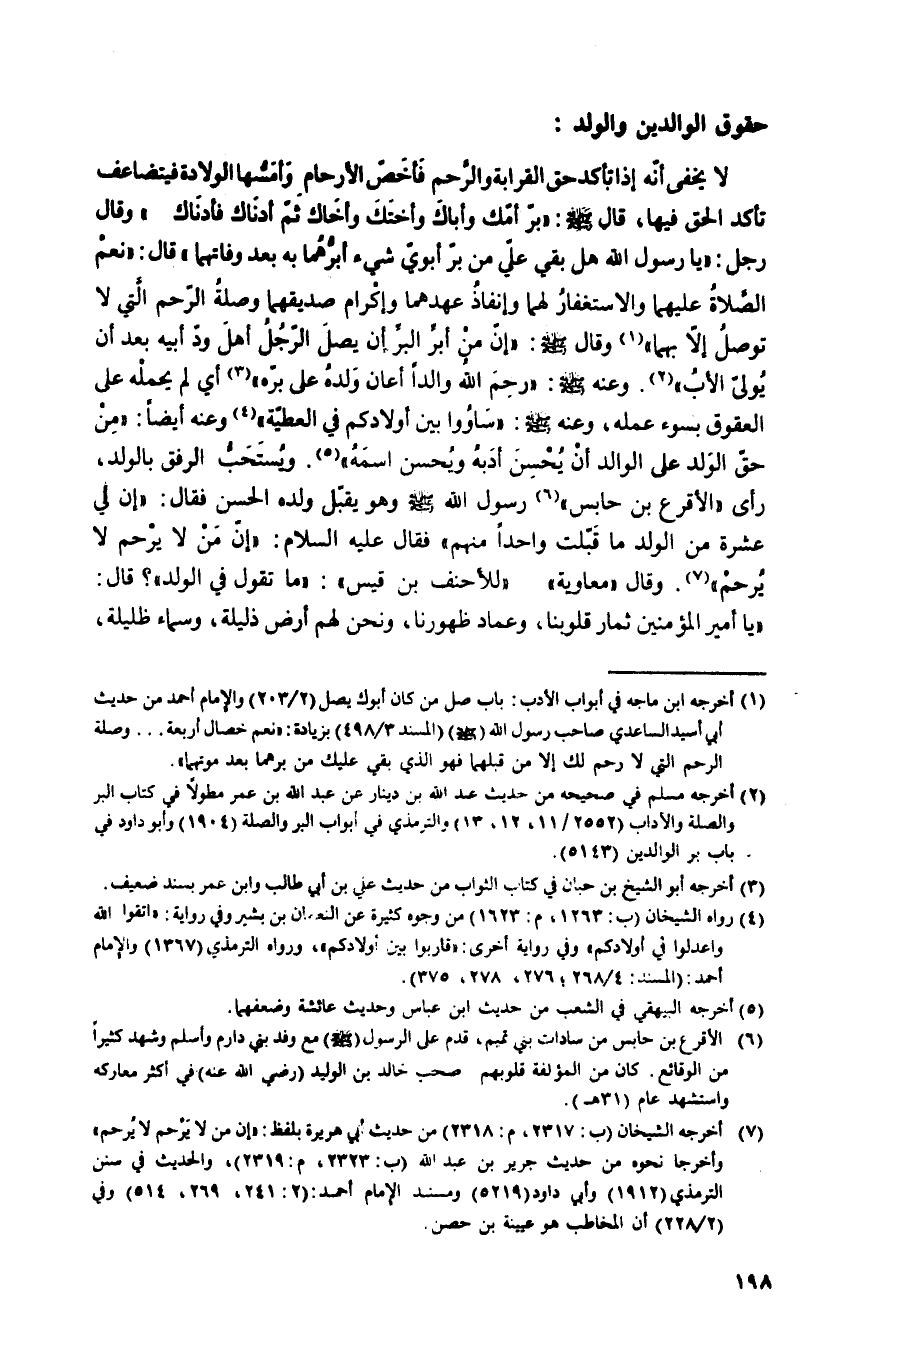 حقوق الوالدين والولد :
لا يخفى أنّه إذا تأكد حق القرابة والرَّحم فَأخَصّ الأرحام وَأمَسُّها الولادة فيتضاعف
تأكد الحق فيها، قال ﷺ : «برّ أمّك وأباكَ وأختَكَ وأخَاكَ ثمّ أدنَاكَ فأدنَاكَ » وقال
رجل : «يا رسول الله هل بقي عليّ من برّ أبويّ شيء أبرُّهُما به بعد وفاتهما » قال : «نعمْ
الصَّلاةُ عليهما والاستغفارُ لهما وإنفاذُ عهدهما وإكْرام صديقهما وصلةُ الرّحم الَّتي لا
توصلُ إلاّ بهما»(١) وقال ﷺ : «إنّ منْ أبرِّ البرِّ أن يصلَ الرّجُلُ أهلَ ودّ أبيه بعد أن
يُولّيَ الأبُ»(٢). وعنه ﷺ : «رحِمَ اللهُ والداً أعان وَلدهُ على برّه»(٣) أي لم يحملْه على
العقوق بسوء عمله، وعنه ﷺ : «سَاوُوا بين أولادكم في العطيّة»(٤) وعنه أيضاً : «مِنْ
حقّ الوَلد على الوالد أنْ يُحْسِنَ أدَبهُ ويُحسن اسمَهُ»(٥). ويُستَحَبُّ الرفق بالولد،
رأى «الأقرع بن حابس»(٦) رسول الله ﷺ وهو يقبّل ولده الحسن فقال : «إن لي
عشرة من الولد ما قَبّلت واحداً منهم» فقال عليه السلام : «إنّ مَنْ لا يرْحم لا
يُرحمْ»(٧). وقال «معاوية» «للأحنف بن قيس» : «ما تقول في الولد»؟ قال :
«يا أمير المؤمنين ثمار قلوبنا، وعماد ظهورنا، ونحن لهم أرض ذليلة، وسماء ظليلة،
(١) أخرجه ابن ماجه في أبواب الأدب : باب صل من كان أبوك يصل (٢٠٣/٢) والإمام أحمد من حديث
أبي أسيد الساعدي صاحب رسول الله (ﷺ) (المسند ٤٩٨/٣) بزيادة : «نعم خصال أربعة . . . وصلة
الرحم التي لا رحم لك إلا من قبلهما فهو الذي بقي عليك من برهما بعد موتهما».
(٢) أخرجه مسلم في صحيحه من حديث عبد الله بن دينار عن عبد الله بن عمر مطولاً في كتاب البر
والصلة والآداب (٢٥٥٢ / ١١، ١٢، ١٣) والترمذي في أبواب البر والصلة (١٩٠٤) وأبو داود في
باب بر الوالدين (٥١٤٣).
(٣) أخرجه أبو الشيخ بن حبان في كتاب الثواب من حديث علي بن أبي طالب وابن عمر بسند ضعيف.
(٤) رواه الشيخان (ب : ١٢٦٣، م : ١٦٢٣) من وجوه كثيرة عن النعمان بن بشير وفي رواية : «اتقوا الله
واعدلوا في أولادكم» وفي رواية أخرى : «قاربوا بين أولادكم»، ورواه الترمذي (١٣٦٧) والإمام
أحمد : (المسند : ٢٦٨/٤ ؛ ٢٧٦، ٢٧٨، ٣٧٥).
(٥) أخرجه البيهقي في الشعب من حديث ابن عباس وحديث عائشة وضعفهما.
(٦) الأقرع بن حابس من سادات بني تميم، قدم على الرسول (ﷺ) مع وفد بني دارم وأسلم وشهد كثيراً
من الوقائع. كان من المؤلفة قلوبهم صحب خالد بن الوليد (رضي الله عنه) في أكثر معاركه
واستشهد عام (٣١هـ ).
(٧) أخرجه الشيخان (ب : ٢٣١٧، م : ٢٣١٨) من حديث أبي هريرة بلفظ : «إن من لا يَرْحم لا يُرحم»
وأخرجا نحوه من حديث جرير بن عبد الله (ب : ٢٣٢٣، م : ٢٣١٩)، والحديث في سنن
الترمذي (١٩١٢) وأبي داود (٥٢١٩) ومسند الإمام أحمد : (٢ : ٢٤١، ٢٦٩، ٥١٤) وفي
(٢٢٨/٢) أن المخاطب هو عيينة بن حصن.
١٩٨